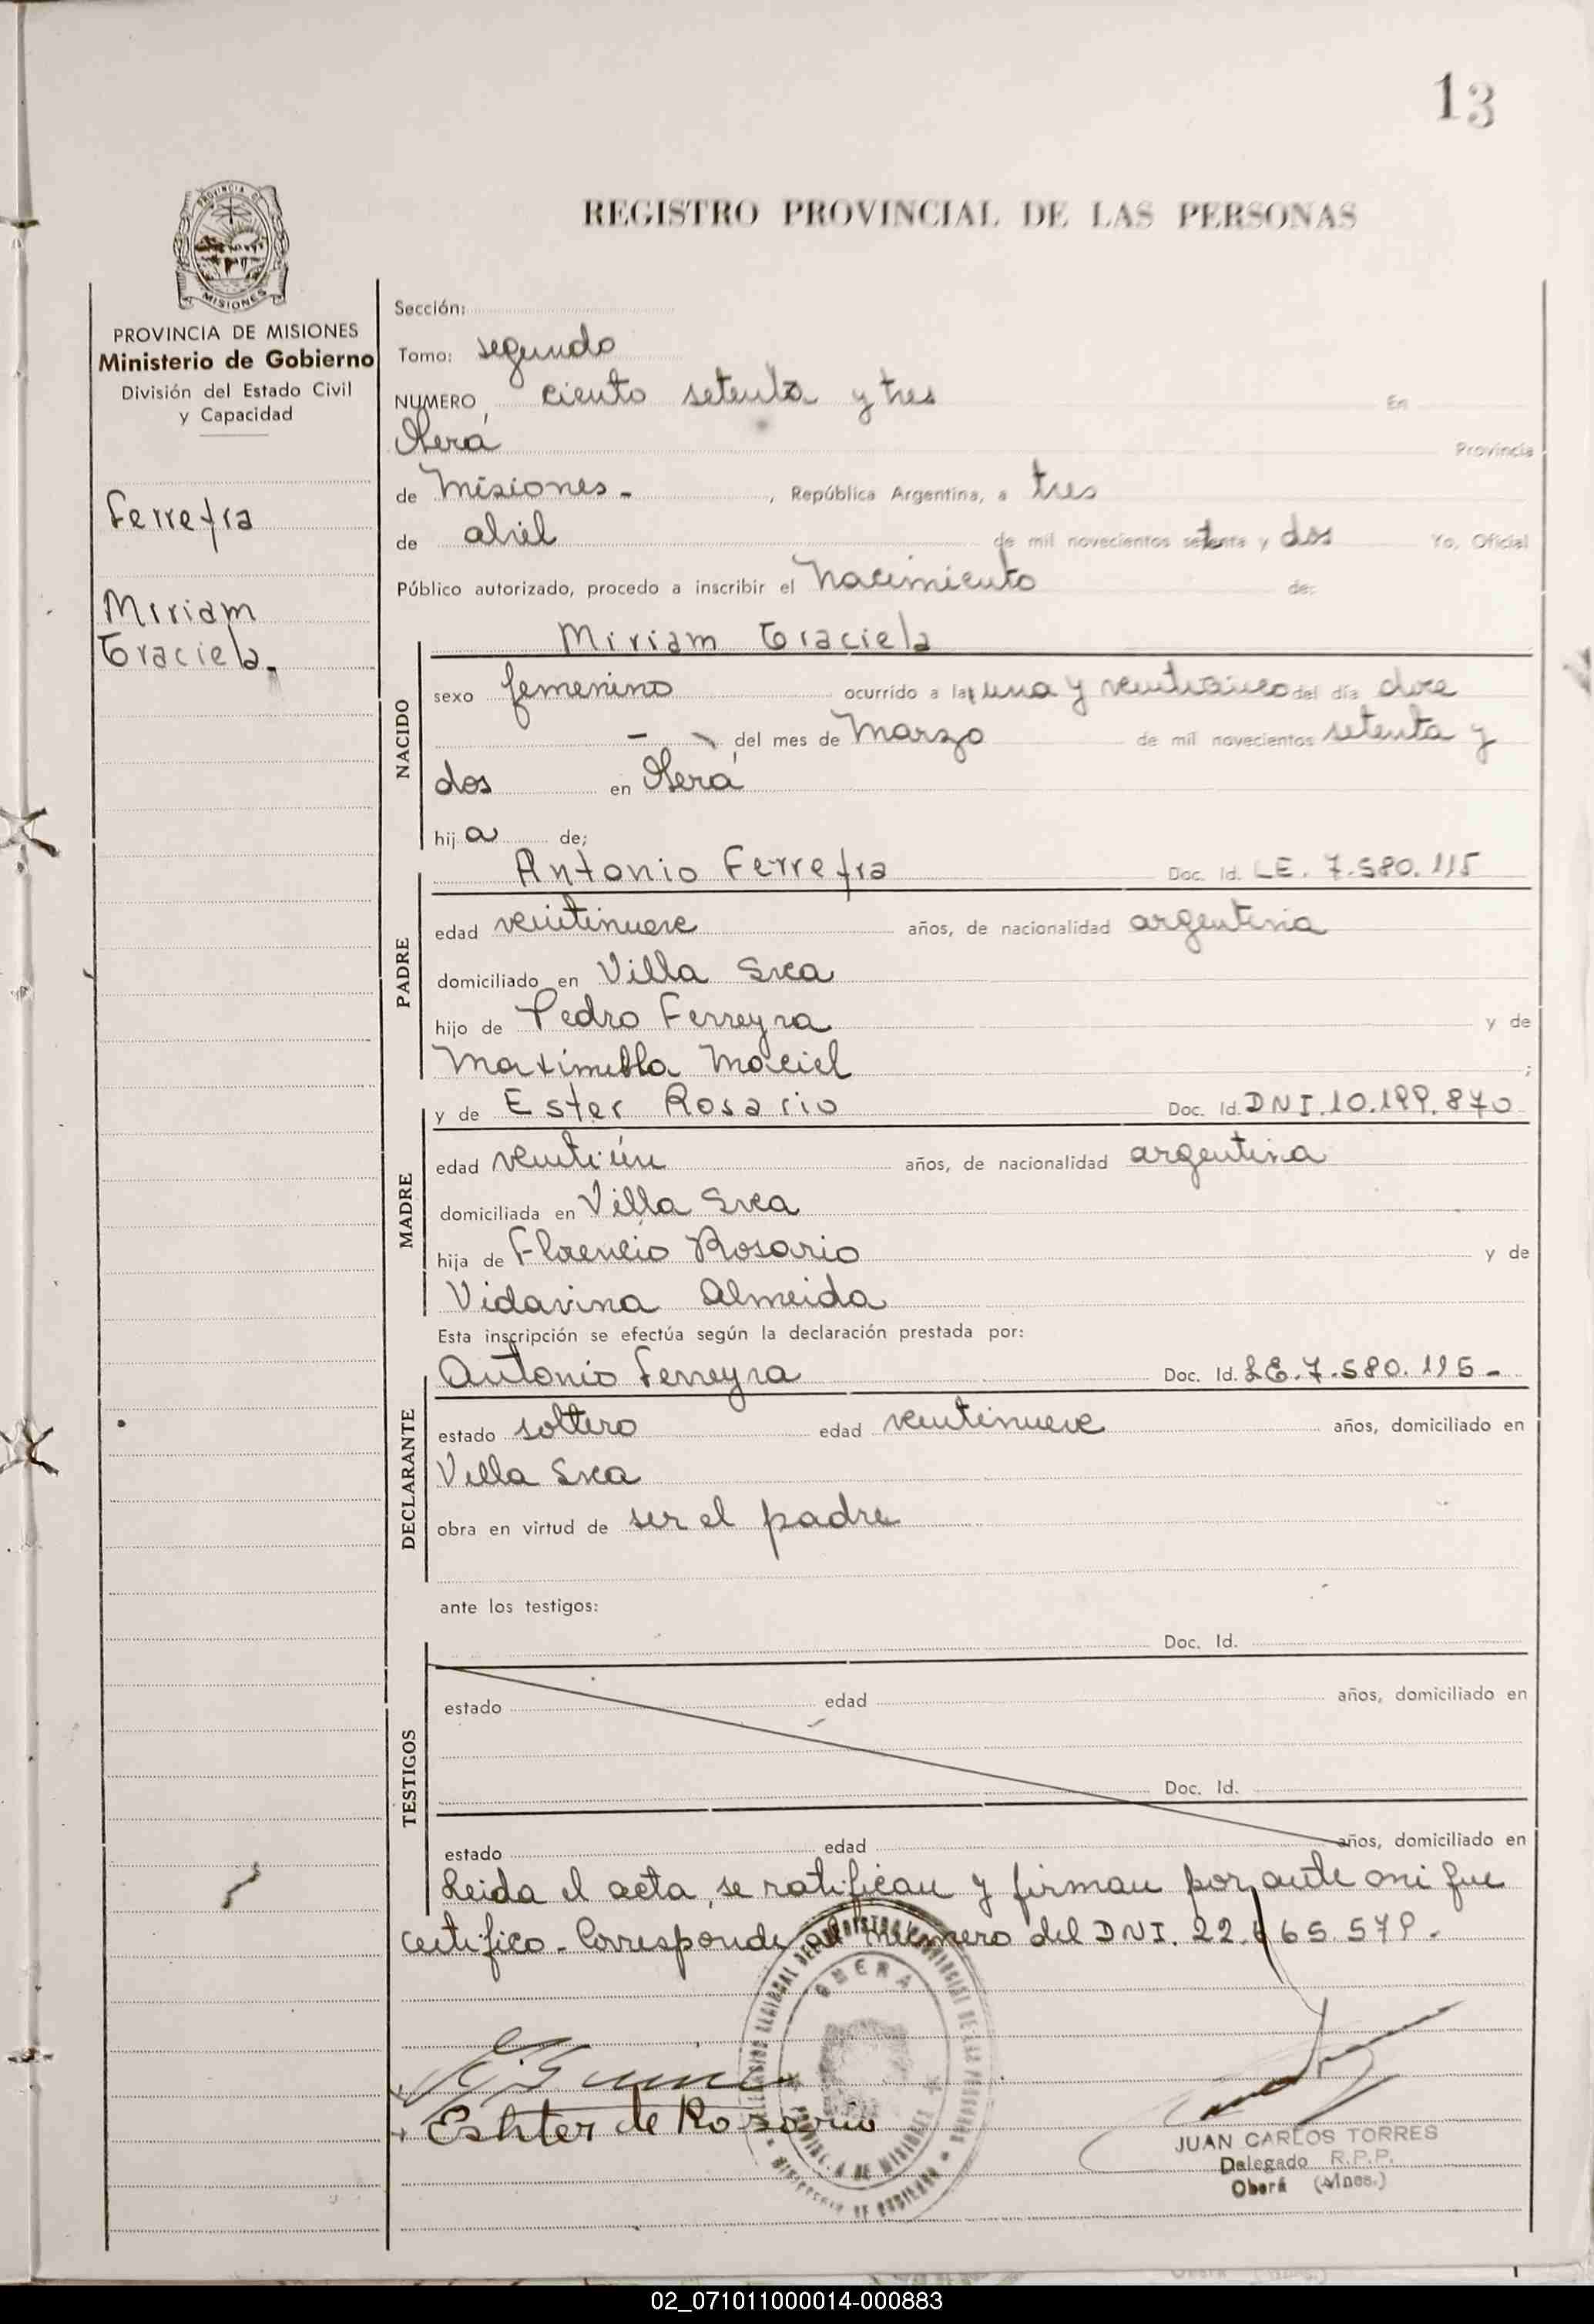 13
REGISTRO PROVINCIAL DE LAS PERSONAS
PROVINCIA DE MISIONES
Ministerio de Gobierno
División del Estado Civil
y Capacidad
Ferreyra
Miriam
Graciela.
Sección:
Tomo: segundo
NUMERO ciento setenta y tres En
Oberá Provincia
de Misiones - , República Argentina, a tres
de abril de mil novecientos setenta y dos Yo, Oficial
Público autorizado, procedo a inscribir el Nacimiento de:
NACIDO
Miriam Graciela
sexo femenino ocurrido a las una y veinticinco del día doce
- del mes de Marzo de mil novecientos setenta y
dos en Oberá
hija de;
PADRE
Antonio Ferreyra Doc. Id. LE. 7.580.115
edad veintinueve años, de nacionalidad argentina
domiciliado en Villa Svea
hijo de Pedro Ferreyra y de
Maximilla Maciel ;
MADRE
y de Ester Rosario Doc. Id. DNI.10.199.870
edad veintiún años, de nacionalidad argentina
domiciliada en Villa Svea
hija de Florencio Rosario y de
Vidavina Almeida
Esta inscripción se efectúa según la declaración prestada por:
DECLARANTE
Antonio Ferreyra Doc. Id. LE.7.580.115-
estado soltero edad veintinueve años, domiciliado en
Villa Svea
obra en virtud de ser el padre
ante los testigos:
TESTIGOS
Doc. Id.
estado edad años, domiciliado en
Doc. Id.
estado edad años, domiciliado en
Leida el acta, se ratifican y firman por ante mi que
certifico - Corresponde al número del DNI. 22.665.579.-
OBERA
Eshter de Rosario
JUAN CARLOS TORRES
Delegado R.P.P.
Oberá (Mnes.)
02_071011000014-000883